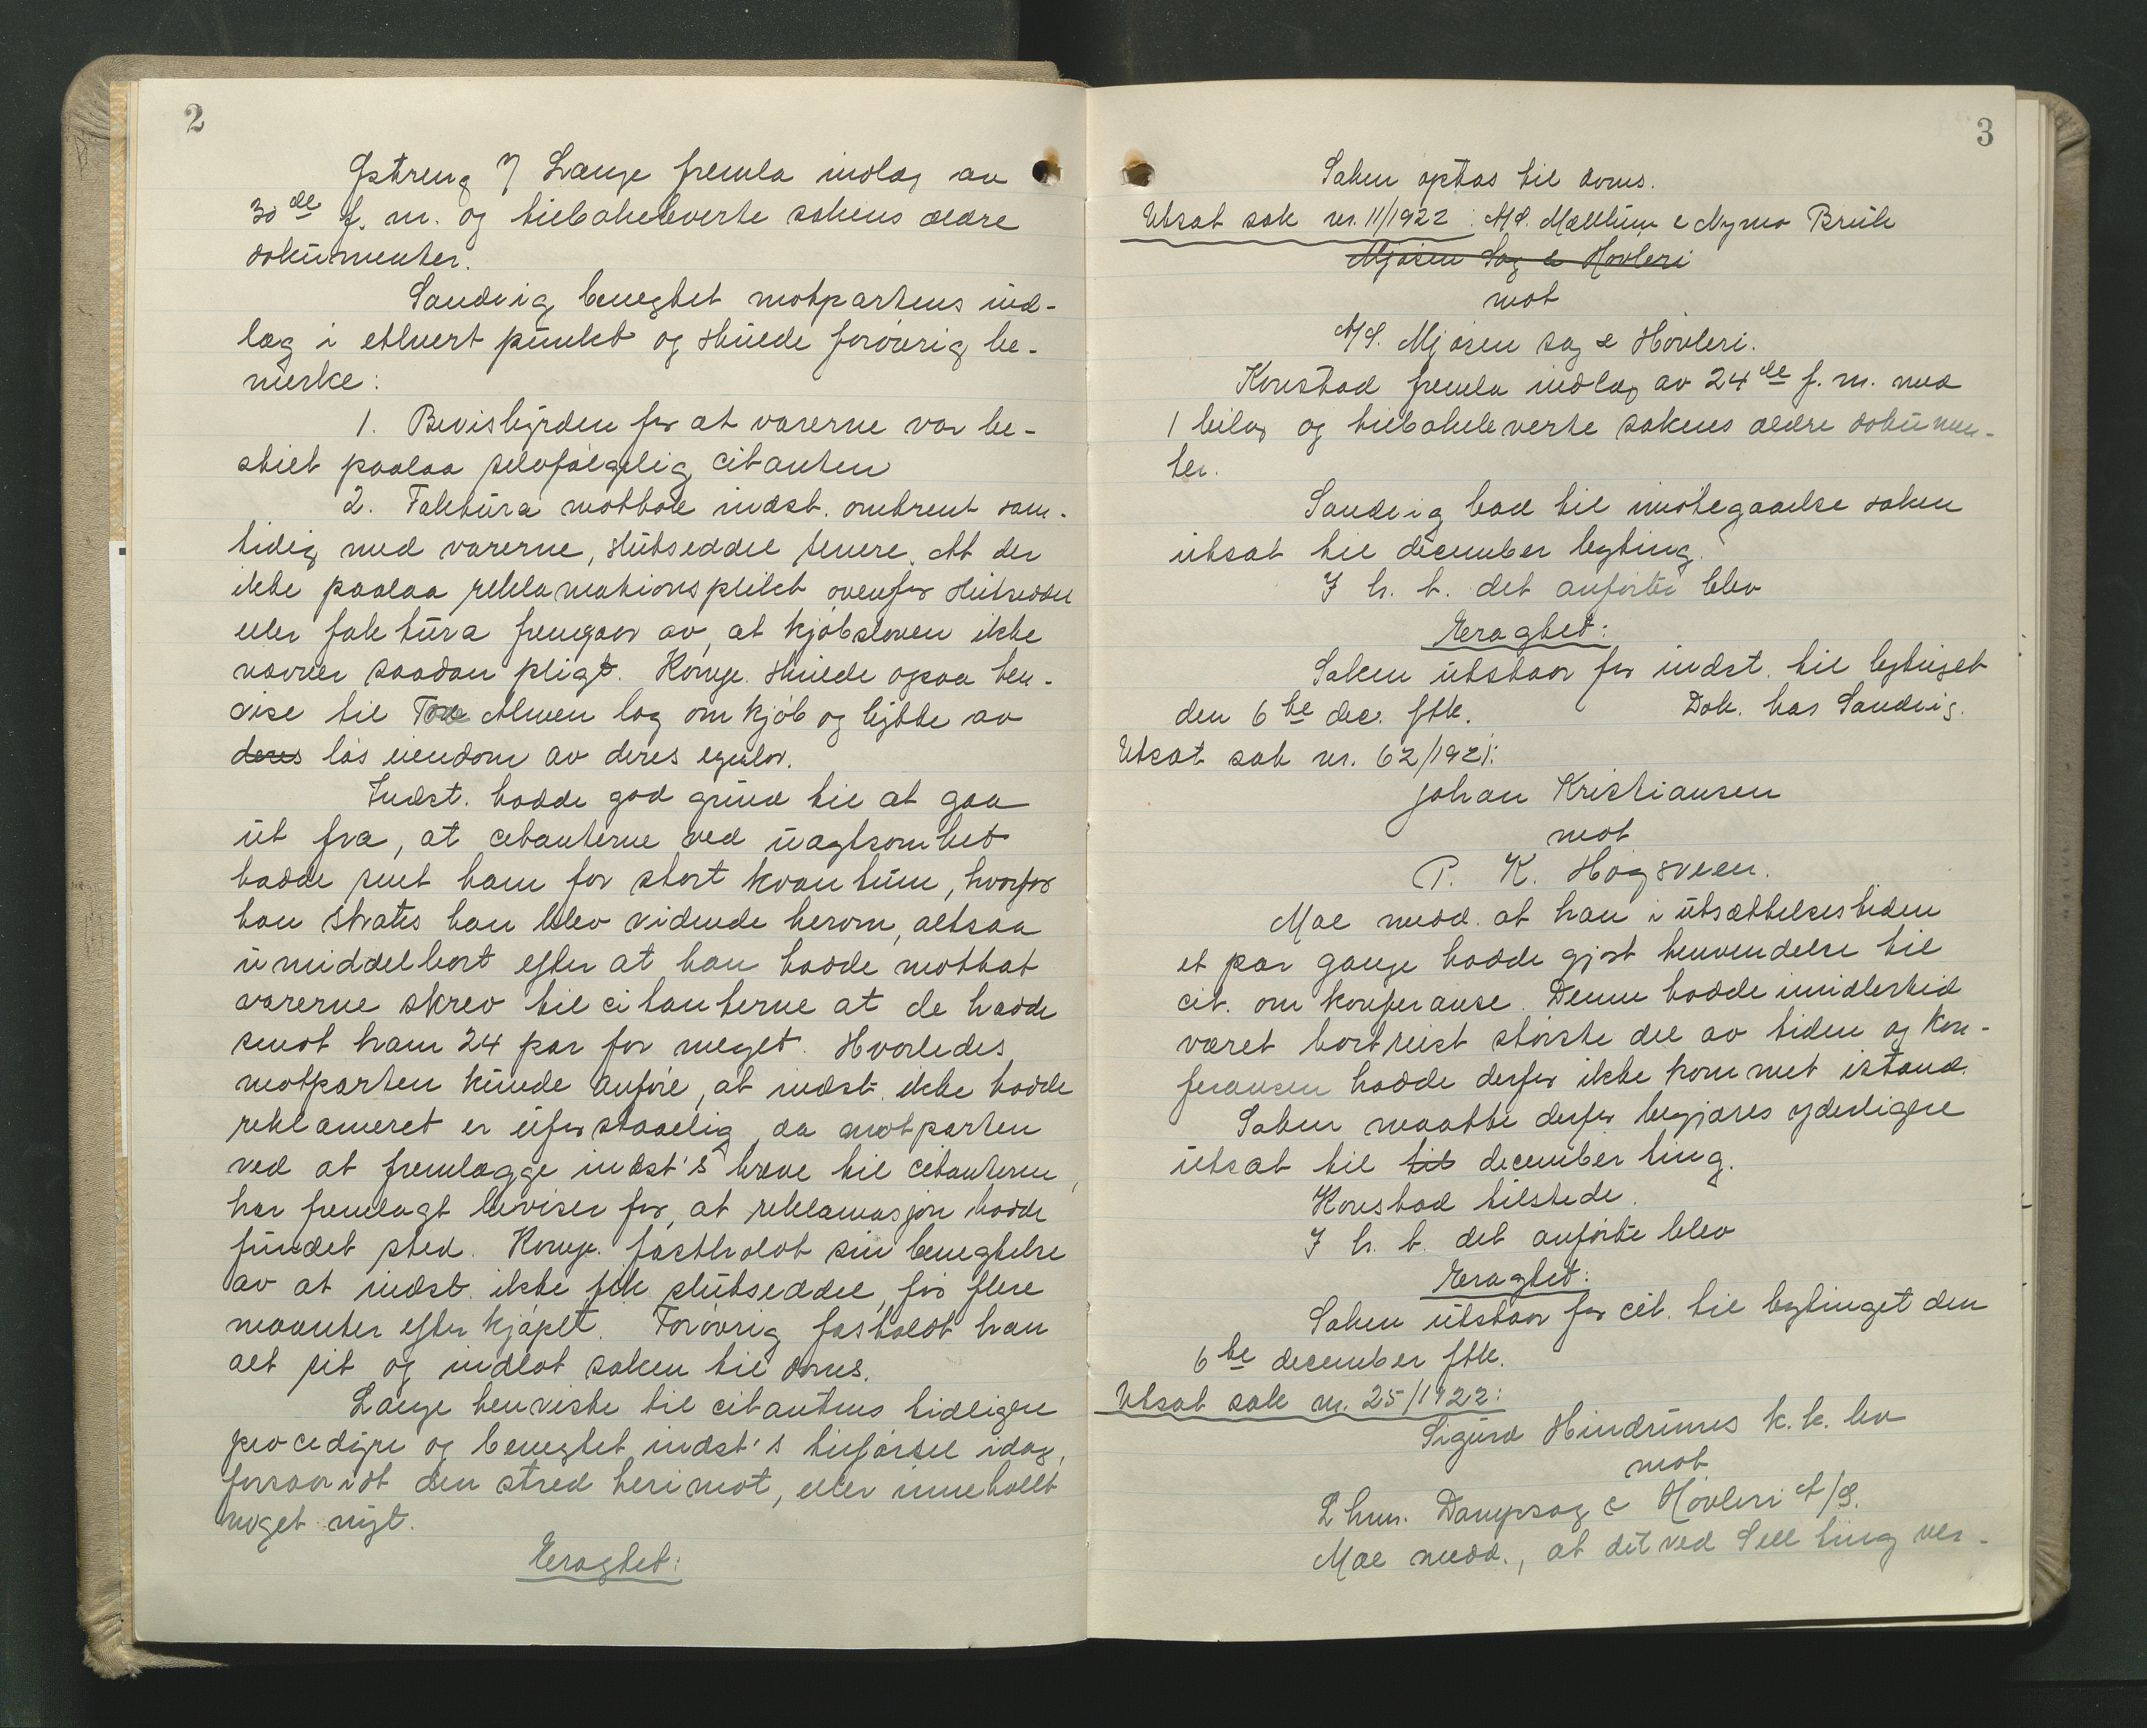 2
Lange fremla indlæg av
30 de f. m. og tilbakeleverte sakens ældre
dokumenter.
Sandvig benegtet motpartens ind-
læg i ethvert punkt og skulde forøvrig be-
merke:
1. Bevisbyrden for at varerne var be-
stilt paalaa selvfølgelig citanten
2. Faktura mottok indst. omtrent sam-
tidig med varerne, slutseddel senere. At der
ikke paalaa reklamationsplikt ovenfor slutseddel
eller faktura fremgaar av, at kjøbsloven ikke
nævner saadan pligt. Konge. skulde ogsaa hen-
vise til Almen lov om kjøb og bytte av
deres løs eiendom av deres
Indst. hadde god grund til at gaa
ut fra, at citanterne ved uagtsomhet
hadde sent ham for stort kvantum, hvorfor
han straks han blev vidende herom, altsaa
umiddelbart efter at han hadde mottat
varerne skrev til citanterne at de hadde
sendt ham 24 par for meget. Hvorledes
motparten kunde anføre, at indst. ikke hadde
reklameret er uforstaaelig, da motparten
ved at fremlægge indst's breve til citanterne,
har fremlagt beviser for, at reklamasjon hadde
fundet sted. Konge. fastholdt sin benegtelse
av at indst. ikke fik slutseddel, før flere
maanter efter kjøpet. Forøvrig fastholdt han
alt sit og indlot saken til doms.
Lange henviste til citantens tidligere
procedyre og benegtet indst's tilførsel idag,
forsaavidt den stred herimot, eller inneholdt
noget nyt.
Eragtet:
3
Saken optas til doms.
Utsat sak nr. 11/1922: A/S. Mællum & Nymo Bruk
Mjøsen Sag & Høvleri
mot
A/S. Mjøsen sag & Høvleri.
Konstad fremla indlæg av 24 de f. m. med
1 bilag og tilbakeleverte sakens ældre dokumen-
ter.
Sandvig bad til imøtegaaelse saken
utsat til december byting.
I h. t. det anførte blev
Eragtet:
Saken utstaar for indst. til bytinget
den 6 te dec. fstk. Dok. hos Sandvig.
Utsat sak nr. 62/1921:
Johan Kristiansen
mot
P. K. Høgsveen.
Moe medd. at han i utsættelsestiden
et par gange hadde gjort henvendelse til
cit. om konferanse. Denne hadde imidlertid
været bortreist største del av tiden og kon-
feransen hadde derfor ikke kommet istand.
Saken maatte derfor begjæres yderligere
utsat til til december ting.
Konstad tilstede.
I h. t. det anførte blev
Eragtet:
Saken utstaar for cit. til bytinget den
6 te december fstk.
Utsat sak nr. 25/1922:
Sigurd Hindrums k. k. bo
mot
Lhmr. Dampsag & Høvleri A/S.
Moe medd., at det ved Sell ting ver-